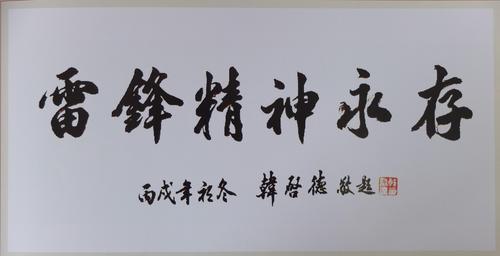 雷鋒精神永存
丙戌年初冬 韓啓德 敬題